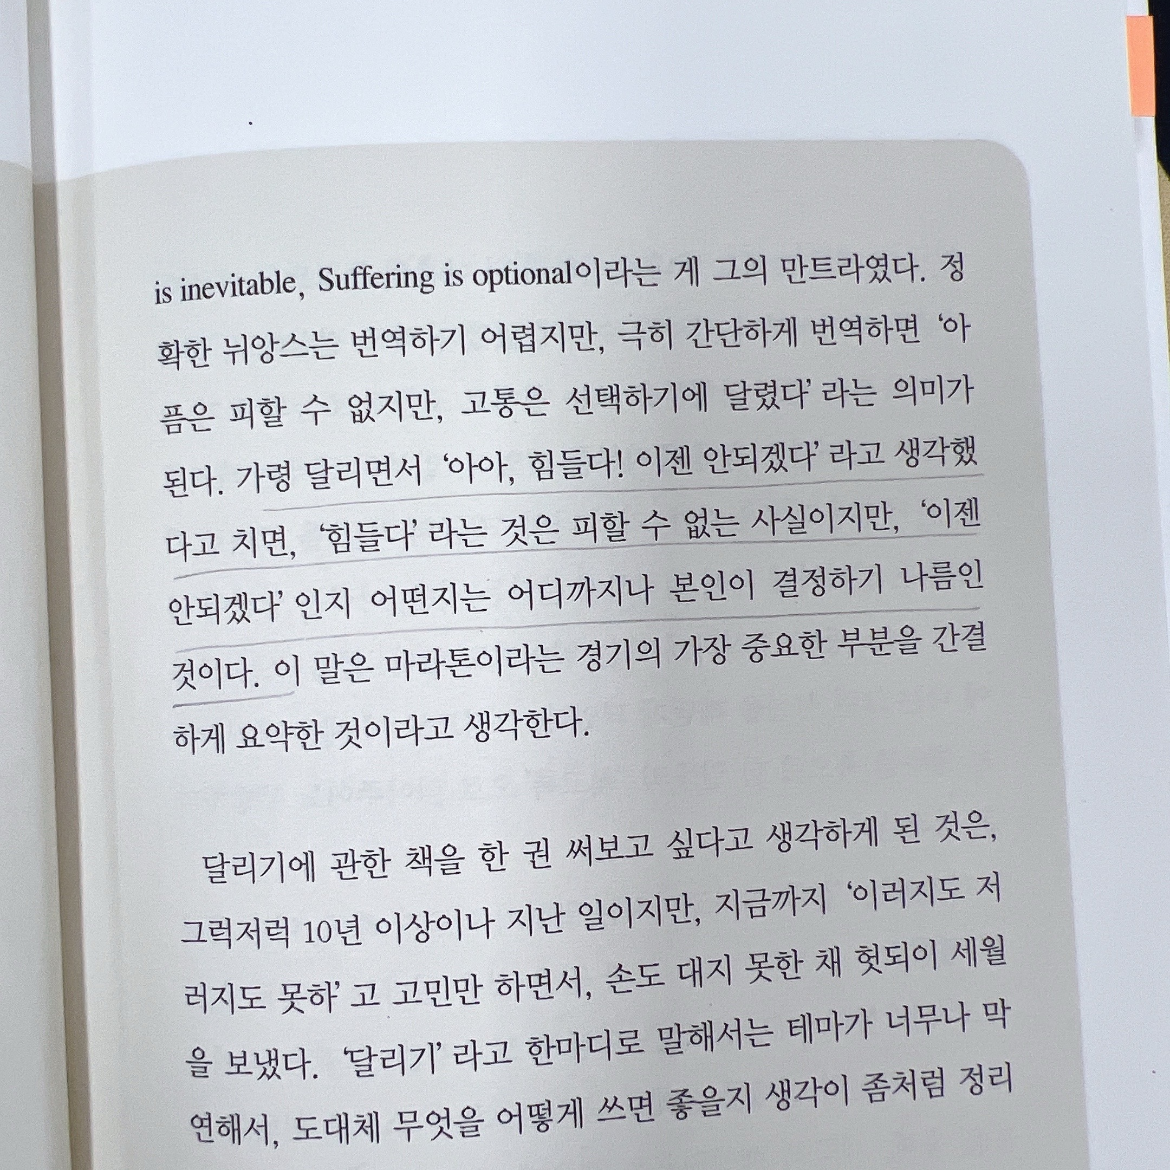 is inevitable, Suffering is optional이라는 게 그의 만트라였다. 정
확한 뉘앙스는 번역하기 어렵지만, 극히 간단하게 번역하면 ‘아
픔은 피할 수 없지만, 고통은 선택하기에 달렸다’라는 의미가
된다. 가령 달리면서 ‘아아, 힘들다! 이젠 안되겠다’라고 생각했
다고 치면, ‘힘들다’라는 것은 피할 수 없는 사실이지만, ‘이젠
안되겠다’인지 어떤지는 어디까지나 본인이 결정하기 나름인
것이다. 이 말은 마라톤이라는 경기의 가장 중요한 부분을 간결
하게 요약한 것이라고 생각한다.
달리기에 관한 책을 한 권 써보고 싶다고 생각하게 된 것은,
그럭저럭 10년 이상이나 지난 일이지만, 지금까지 ‘이러지도 저
러지도 못하’고 고민만 하면서, 손도 대지 못한 채 헛되이 세월
을 보냈다. ‘달리기’라고 한마디로 말해서는 테마가 너무나 막
연해서, 도대체 무엇을 어떻게 쓰면 좋을지 생각이 좀처럼 정리